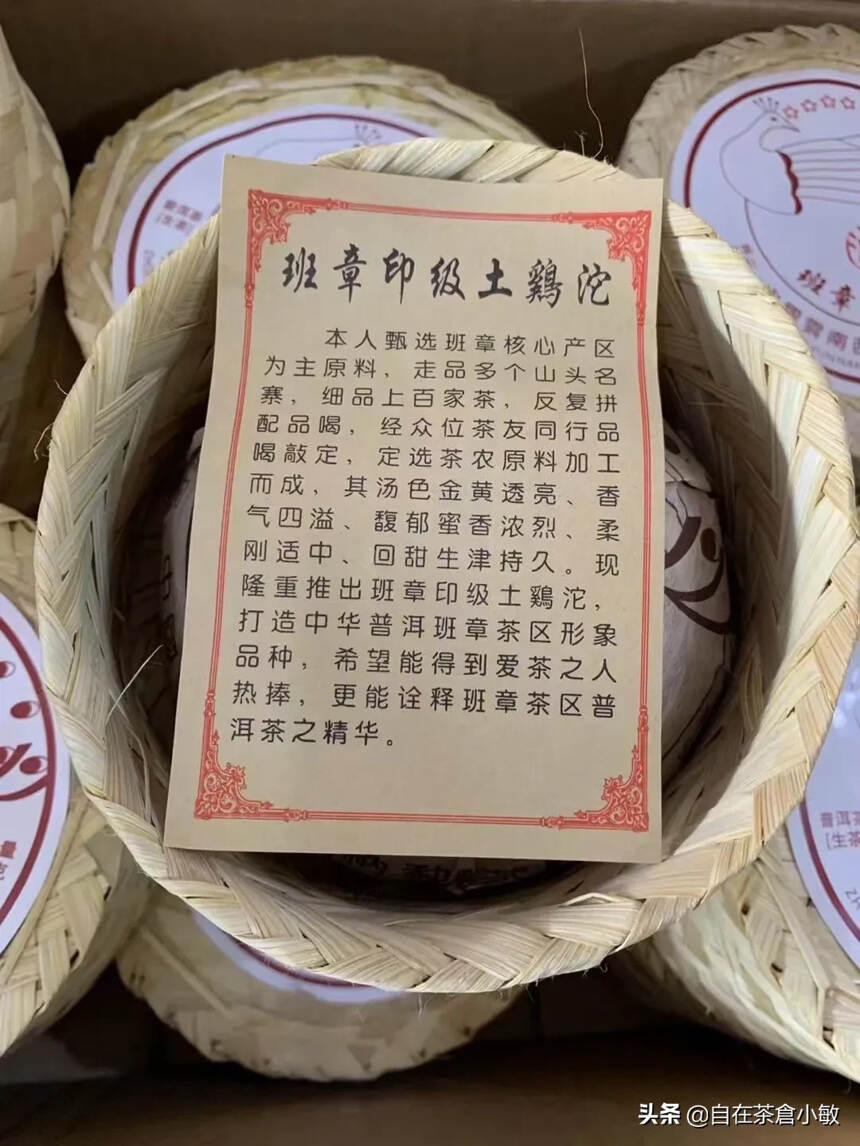 班章印级土鷄沱
本人甄选班章核心产区
为主原料，走品多个山头名
寨，细品上百家茶，反复拼
配品喝，经众位茶友同行品
喝敲定，定选茶农原料加工
而成，其汤色金黄透亮、香
气四溢、馥郁蜜香浓烈、柔
刚适中、回甜生津持久。现
隆重推出班章印级土鷄沱，
打造中华普洱班章茶区形象
品种，希望能得到爱茶之人
热捧，更能诠释班章茶区普
洱茶之精华。
普洱茶
[生茶]
班章
雲南
YUNNAN
普洱茶
[生茶
量
克
头条 @自在茶倉小敏